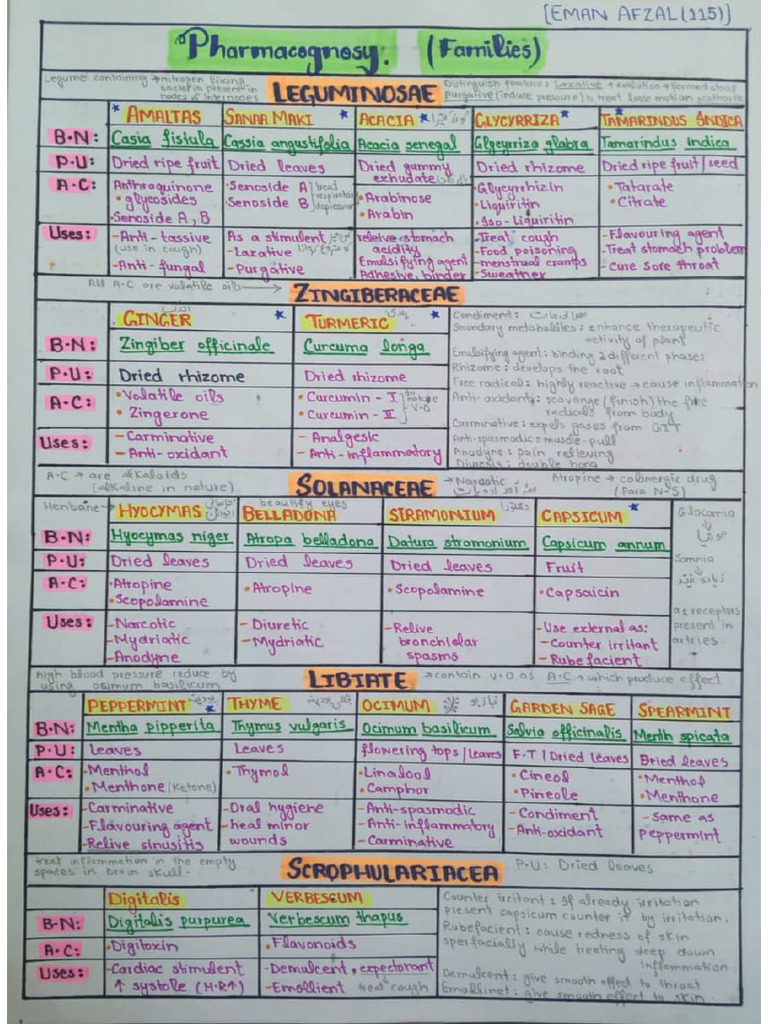 [EMAN AFZAL(115)]
Pharmacognosy. (Families)
Legume containing → nitrogen fixing
bacteria present in
nodes & internodes
LEGUMINOSAE
Distinguish feature: Laxative → evolution → formed stool
purgative (induce pressure) → treat loose motion
AMALTAS SANAR MAKI ACACIA GLYCYRRIZA TAMARINDUS INDICA
B.N: Casia fistula Cassia angustifolia Acacia senegal Glycyrriza glabra Tamarindus indica
P.U: Dried ripe fruit Dried leaves Dried gummy exhudate Dried rhizome Dried ripe fruit/seed
A.C: Anthroquinone • glycosides • Senoside A, B
• Senoside A • Senoside B
• Arabinose • Arabin
• Glycyrrhizin • Liquiritin • Iso-Liquiritin
• Tatarate • Citrate
Uses: - Anti-tassive (use in cough) - Anti-fungal
As a stimulent - Laxative - Purgative
releive stomach acidity Emulsifying agent Adhesive, binder
- Treat cough - Food poisoning - menstrual cramps - Sweather
- Flavouring agent - Treat stomach problem - Cure Sore throat
All A.C are volatile oils →
ZINGIBERACEAE
GINGER TURMERIC
B.N: Zingiber officinale Curcuma longa
P.U: Dried rhizome Dried rhizome
A.C: • Volatile oils • Zingerone
• Curcumin - I • Curcumin - II in nature V.O
Uses: - Carminative - Anti-oxidant
- Analgesic - Anti-inflammatory
Condiment:
Secondary metabolites: enhance therapeutic
activity of plant
Emulsifying agent: binding 2 different phases
Rhizome: develops the root
Free radical: highly reactive → cause inflammation
Anti-oxidant: scavange (finish) the free
radicals from body
Carminative: expels gases from GIT
Anti-spasmodic: muscle-pull
Anodyne: pain relieving
Diuresis:
A.C → are alkaloids
(alkaline in nature)
SOLANACEAE
→ Narcotic
Atropine → colinergic drug
(Para N-S)
Henbane →
beautify eyes
HYOCYMAS BELLADONA SERAMONIUM CAPSICUM
B.N: Hyocymas niger Atropa belladona Datura stramonium Capsicum annum
P.U: Dried leaves Dried leaves Dried leaves Fruit
A.C: • Atropine • Scopolamine
• Atropine
• Scopolamine
• Capsaicin
Uses: - Narcotic - Mydriatic - Anodyne
- Diuretic - Mydriatic
- Relive bronchiolar spasms
- Use external as: - Counter irritant - Rubefacient
Glucomia
Somnia
as receptors
present in
artries
high blood pressure reduce by
using osimum basilicum
LIBIATE
→ contain V.O as A.C → which produce effect
PEPPERMINT THYME OCIMUM GARDEN SAGE SPEARMINT
B.N: Mentha pipperita Thymus vulgaris Ocimum basilicum Salvia officinalis Menth spicata
P.U: Leaves Leaves flowering tops/Leaves F.T/Dried leaves Dried leaves
A.C: • Menthol • Menthone (Ketone)
• Thymol
• Linalool • Camphor
• Cineol • Pineole
• Menthol • Menthone
Uses: - Carminative - Flavouring agent - Relive sinusitis
- Oral hygiene - heal minor wounds
- Anti-spasmodic - Anti-inflammatory - Carminative
- Condiment - Anti-oxidant
- same as Peppermint
treat inflammation in the empty
spaces in brain skull.
SCROPHULARIACEA
P.U: Dried leaves
Digitalis VERBESCUM
B.N: Digitalis purpurea Verbescum thapus
A.C: • Digitoxin • Flavonoids
Uses: - Cardiac stimulent ↑ systole (H.R↑)
- Demulcent, expectorant - Emollient treat cough
Counter irritant: If already irritation
present capsicum counter it by irritation.
Rubefacient: cause redness of skin
sperfacially while treating deep down
inflammation
Demulcent: give smooth effect to throat
Emollinet: give smooth effect to skin.